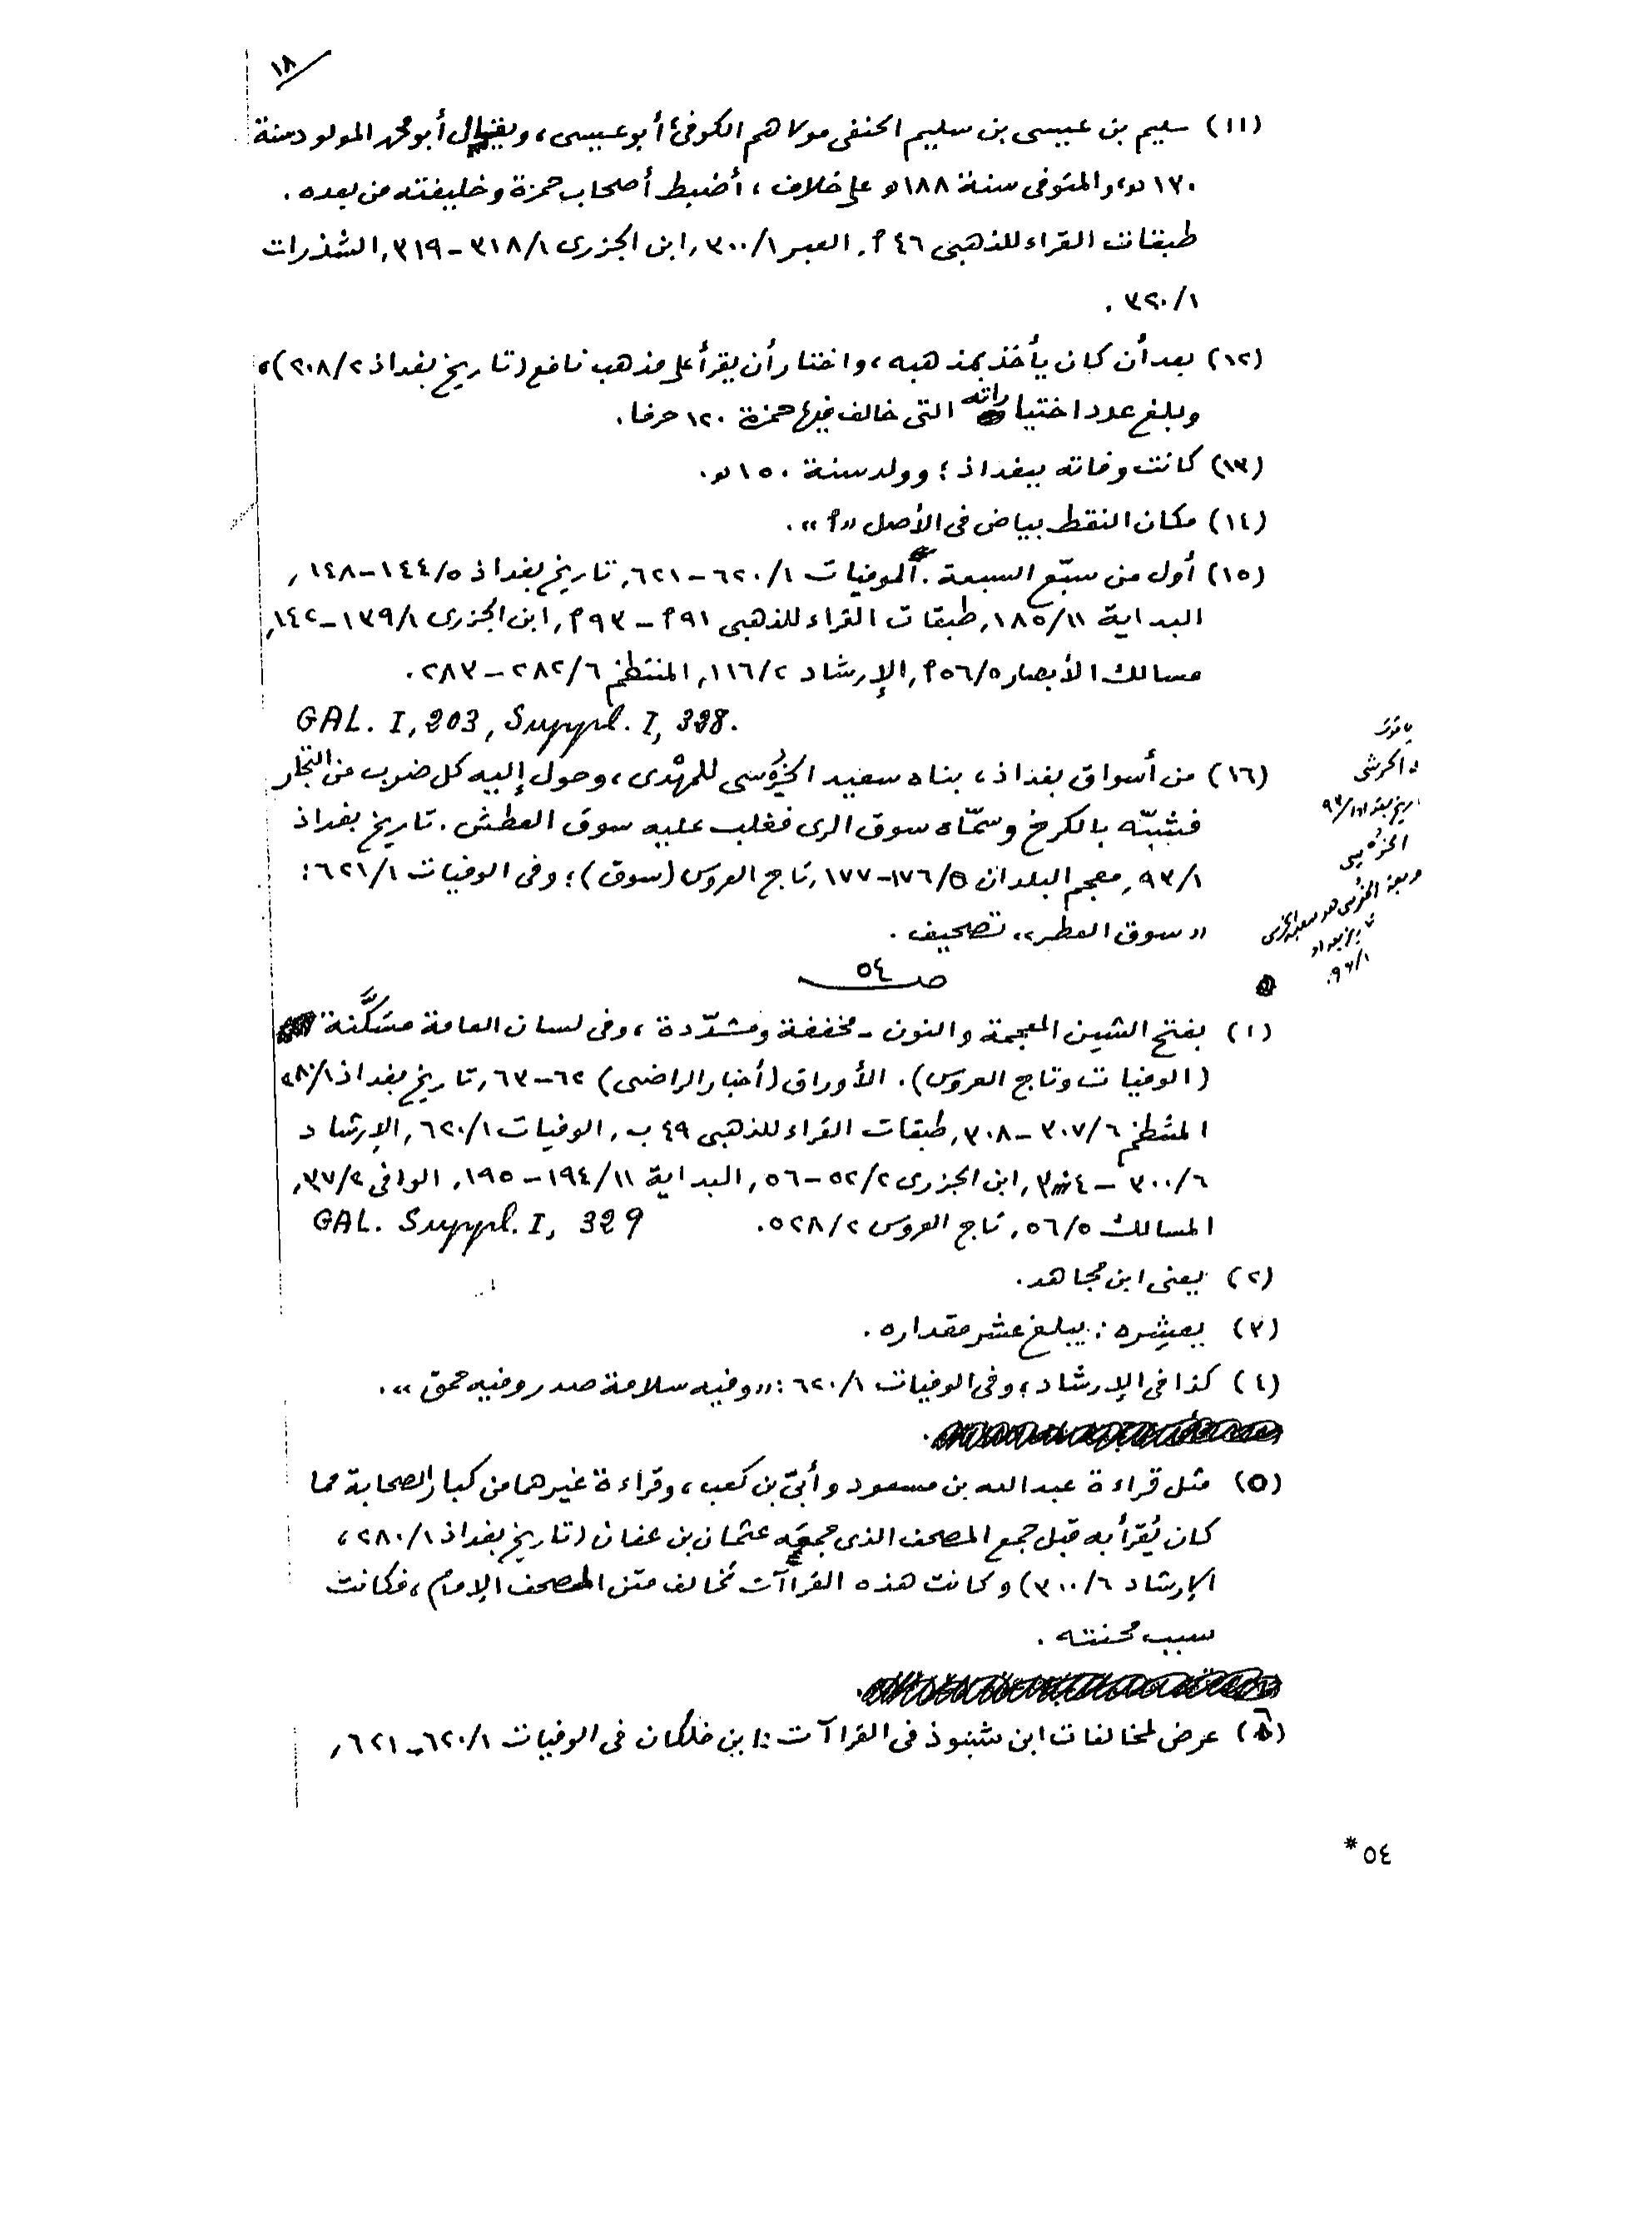 ١٨
(١١) سليم بن عيسى بن سليم الحنفى مولاهم الكوفى، أبو عيسى، ويقال أبو محمد المولود سنة
١٣٠ ه، والمتوفى سنة ١٨٨ ه على خلاف، أضبط أصحاب حمزة وخليفته من بعده.
طبقات القراء للذهبى ٤٦ م, العبر ٣٠٠/١, ابن الجزرى ٣١٨/١-٣١٩, الشذرات
٣٢٠/١ .
(١٢) بعد أن كان يأخذ بمذهبه، واختار أن يقرأ على مذهب نافع (تاريخ بغداذ ٢٠٨/٢)،
وبلغ عدد اختياراته التى خالف فيها حمزة ١٢٠ حرفا.
(١٣) كانت وفاته ببغداذ؛ وولد سنة ١٥٠ ه.
(١٤) مكان النقط بياض فى الأصل «م».
(١٥) أول من سبّع السبعة. الوفيات ٦٢٠/١-٦٢١, تاريخ بغداذ ١٤٤/٥-١٤٨,
البداية ١٨٥/١١, طبقات القراء للذهبى ٩١ م - ٩٣ م, ابن الجزرى ١٣٩/١-١٤٢,
مسالك الأبصار ٥٦/٥ م, الإرشاد ١١٦/٢, المنتظم ٢٨٢/٦-٢٨٣.
GAL. I, 203, Suppl. I, 328.
(١٦) من أسواق بغداذ، بناه سعيد الخُرْسى للمهْدى، وحول إليه كل ضرب من التجار
فشبّه بالكرخ وسمّاه سوق الرى فغلب عليه سوق العطش. تاريخ بغداذ
٩٣/١, معجم البلدان ١٧٦/٥-١٧٧, تاج العروس (سوق)؛ وفى الوفيات ٦٢١/١:
«سوق العطر» تصحيف.
ياقوت
الحرشى
٩٣/١
تاريخ بغداد
٩٦/١.
صـ ٥٤
(١) بفتح الشين المعجمة والنون - مخففة ومشدّدة، وفى لسان العامة مسَكَّنة
(الوفيات وتاج العروس). الأوراق (أخبار الراضى) ٦٢-٦٣, تاريخ بغداذ ٢٨٠/١
المنتظم ٣٠٧/٦-٣٠٨, طبقات القراء للذهبى ٤٩ ب, الوفيات ٦٢٠/١, الإرشاد
٣٠٠/٦-٣٠٤, ابن الجزرى ٥٢/٢-٥٦, البداية ١٩٤/١١-١٩٥, الوافى ٣٧/٢,
المسالك ٥٦/٥, تاج العروس ٥٢٨/٢. GAL. Suppl. I, 329
(٢) يعنى ابن مجاهد.
(٣) يعشِره: يبلغ عشر مقداره.
(٤) كذا فى الإرشاد؛ وفى الوفيات ٦٢٠/١: «وفيه سلامة صدر وفيه حمق».
(٥) مثل قراءة عبد الله بن مسعود وأبىّ بن كعب، وقراءة غيرهما من كبار الصحابة مما
كان يُقرأ به قبل جمع المصحف الذى جمعه عثمان بن عفان (تاريخ بغداذ ٢٨٠/١،
الإرشاد ٣٠٠/٦) وكانت هذه القراآت تخالف متن المصحف الإمام، فكانت
سبب محنته.
(٦) عرض لمخالفات ابن شنبوذ فى القراآت: ابن خلكان فى الوفيات ٦٢٠/١-٦٢١,
٥٤ *